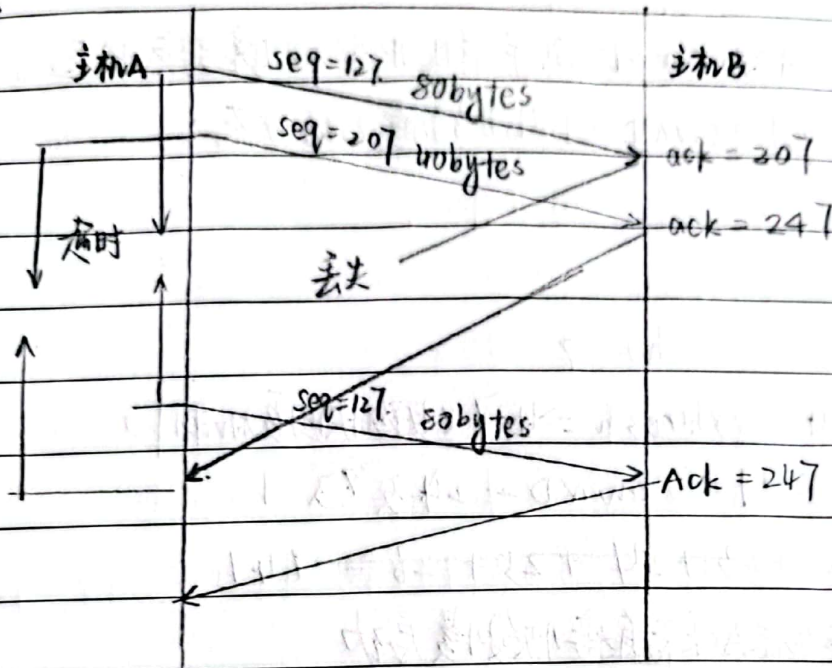 主机A
主机B
seq=127
80bytes
seq=207
40bytes
ack=207
ack=247
超时
丢失
seq=127
80bytes
Ack=247